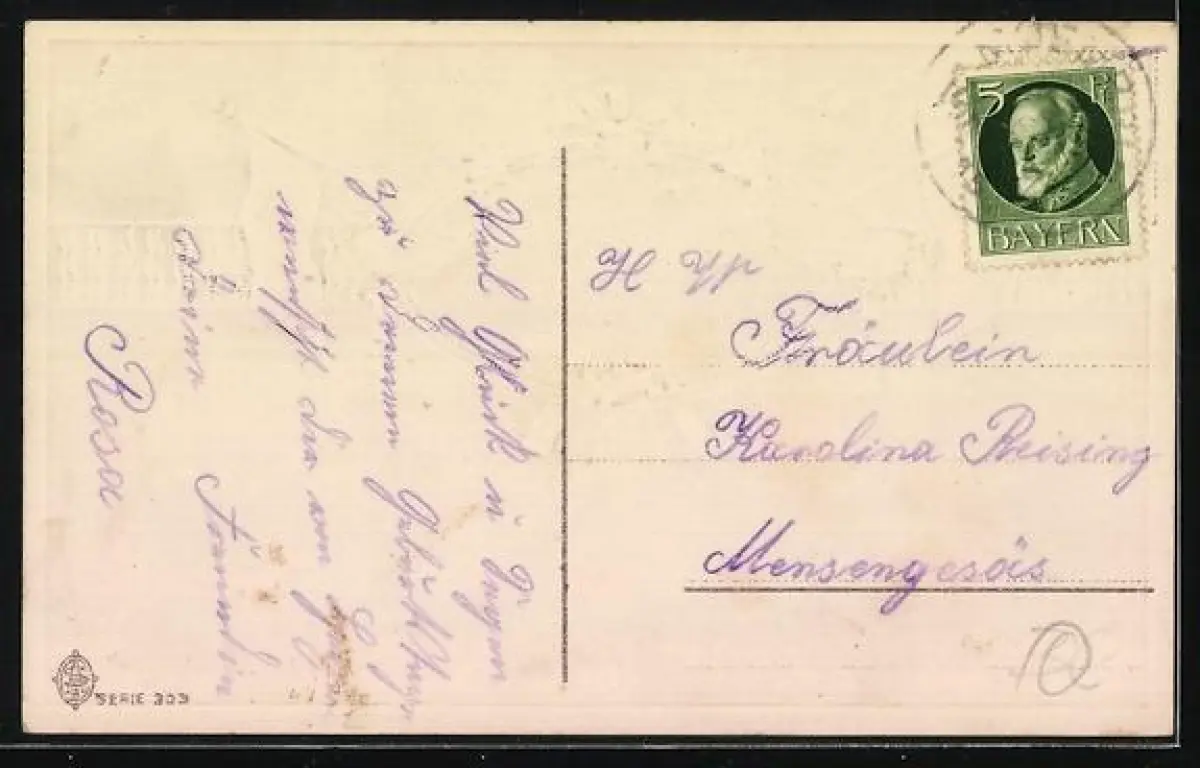 Viel Glück u Segen
zu Deinem Geburtstage
wünscht Dir von Herzen
Deine Freundin
Rosa
5 Pf
BAYERN
Fräulein
Karolina Reising
Mensengesäs
SERIE 303